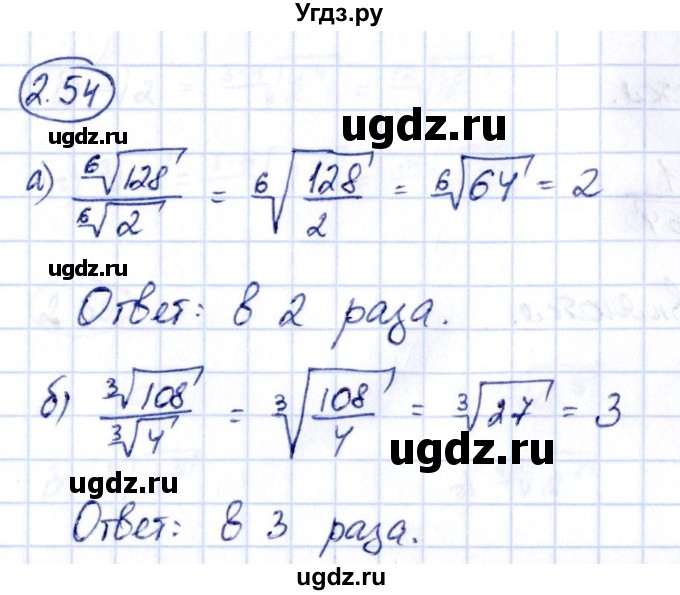 Угдз.ру
2.54
ugdz.ru
ugdz.ru
а) ⁶√128 / ⁶√2 = ⁶√(128/2) = ⁶√64 = 2
ugdz.ru
ugdz.ru
Ответ: в 2 раза.
ugdz.ru
б) ³√108 / ³√4 = ³√(108/4) = ³√27 = 3
ugdz.ru
ugdz.ru
Ответ: в 3 раза.
ugdz.ru
ugdz.ru